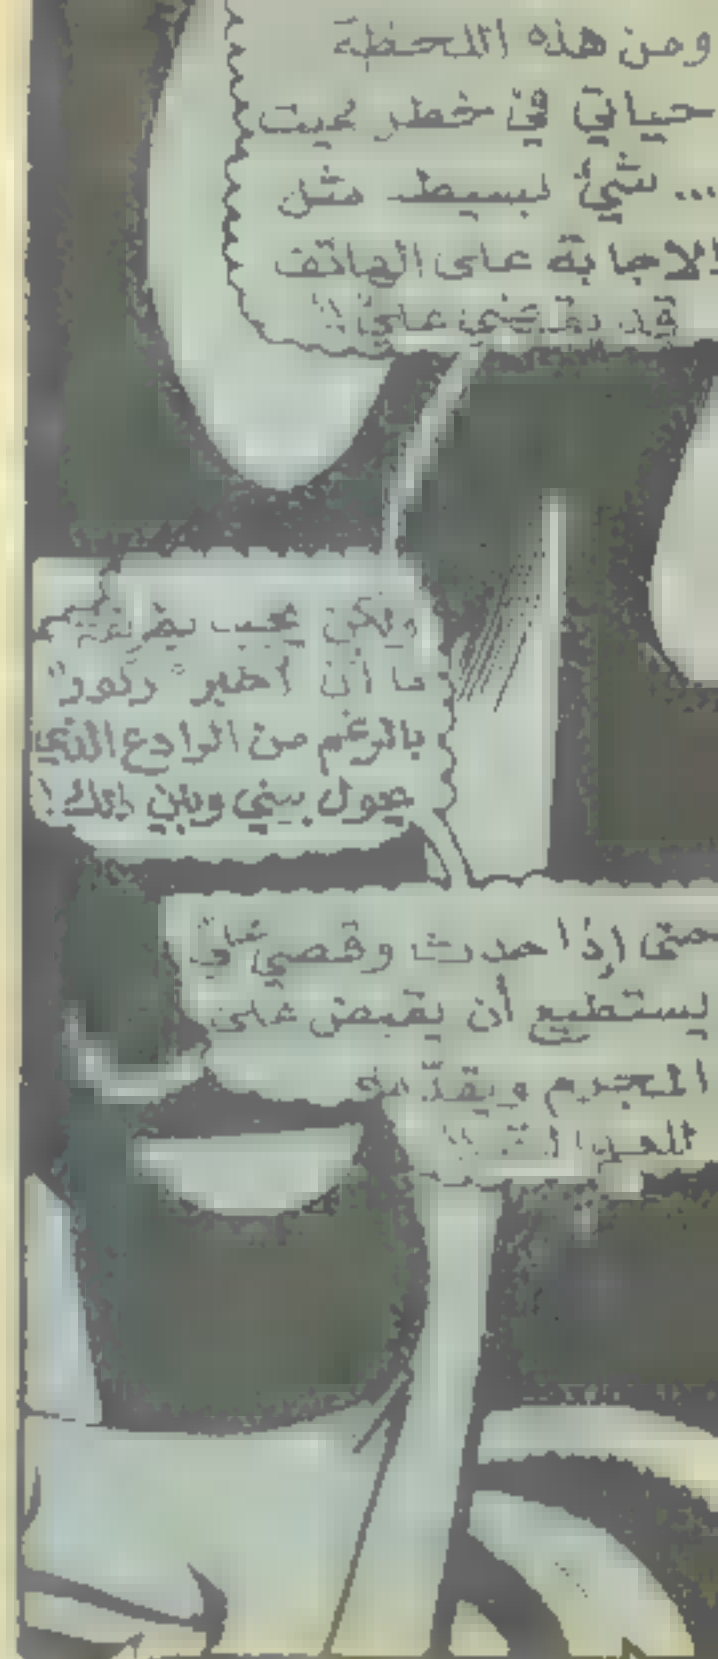 ومن هذه اللحظة
حياتي في خطر مميت
... شيء بسيط مثل
الاجابة على الهاتف
قد يقضي علي !!
ولكن يجب بطريقة
ما أن أخبر "ركور"
بالرغم من الرادع الذي
يحول بيني وبين ذلك !
حتى إذا حدث وقضي علي
يستطيع أن يقبض على
المجرم ويقدمه
للعدالة